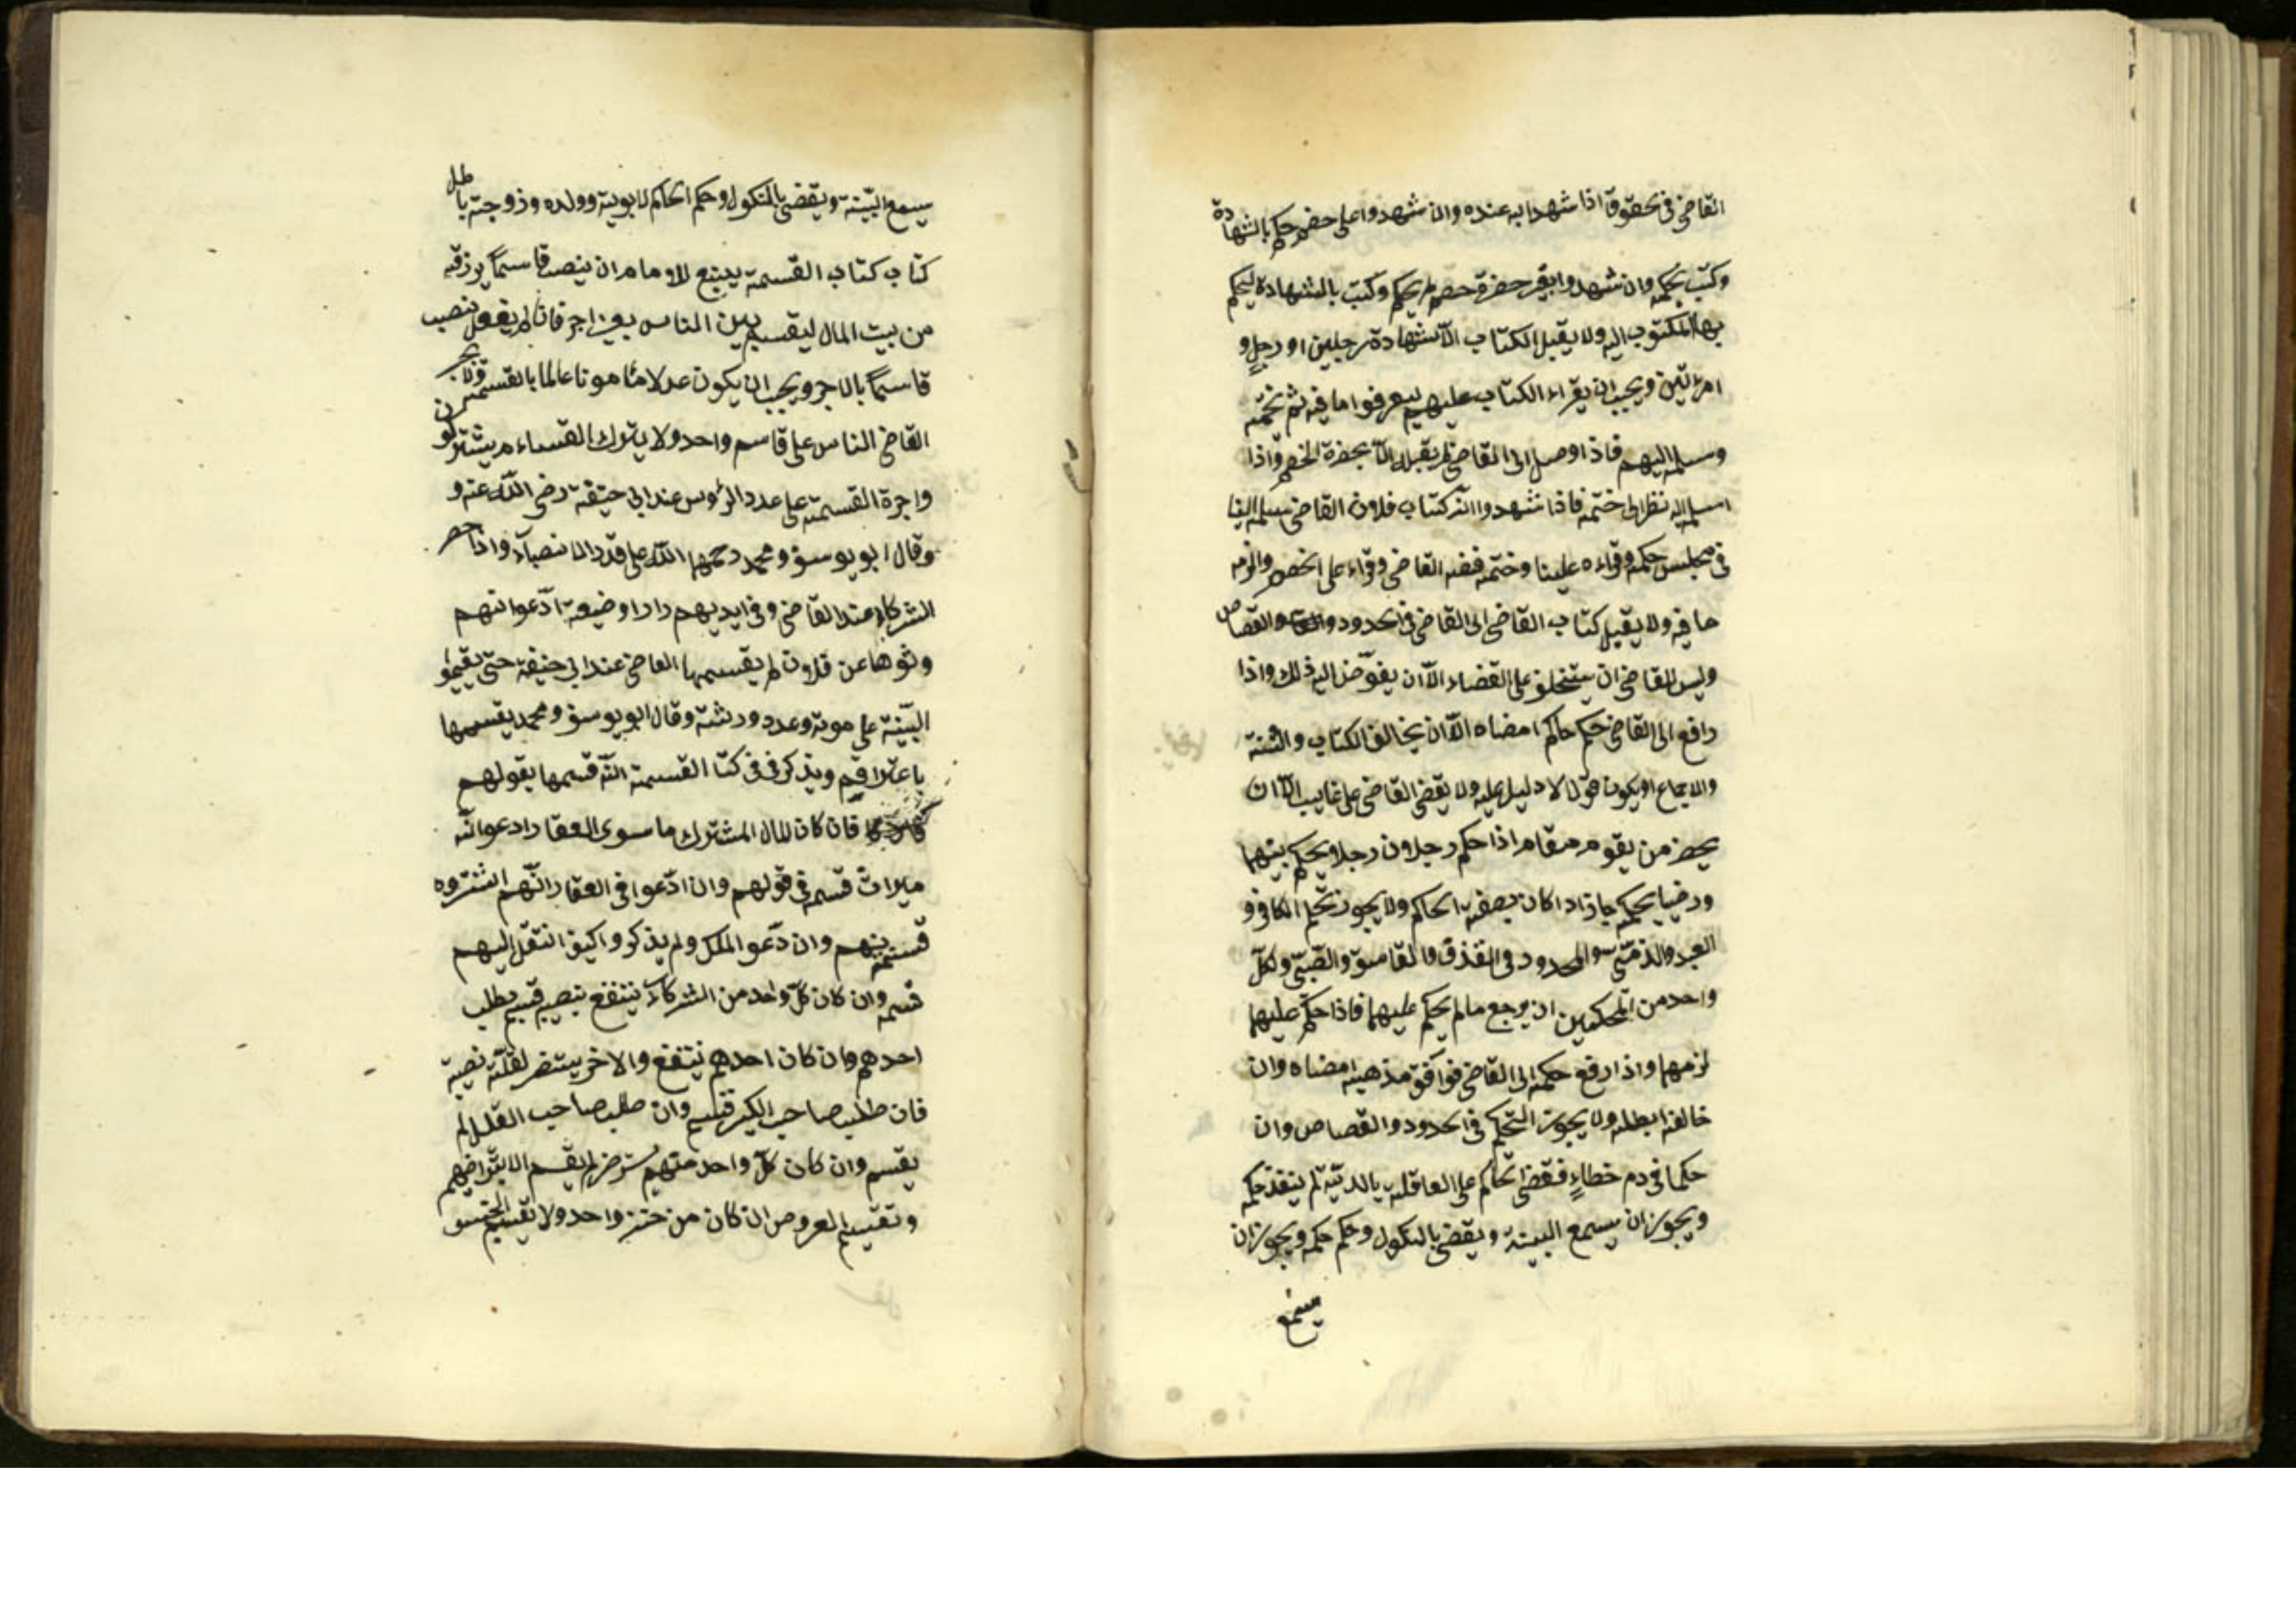 القاضى فى حقوق اذا شهدا به عنده وان شهدوا على خصم حكم بالشهادة
وكتب بحكمه وان شهدوا بغير حضرة خصم لم يحكم وكتب بالشهادة ليحكم
بها المكتوب اليه ولا يقبل الكتاب الا بشهادة رجلين او رجل و
امرءتين ويجب ان يقراء الكتاب عليهم ليعرفوا ما فيه ثم يختمه
وسلمه اليهم فاذا وصل الى القاضى لم يقبله الا بحضرة الخصم واذا
اسلمه اليه نظر الى ختمه فاذا شهدوا انه كتاب فلان القاضى سلمه الينا
فى مجلس حكمه وقراءه علينا وختمه ففضه القاضى وقراء على الخصم والزمه
ما فيه ولا يقبل كتاب القاضى الى القاضى فى الحدود والقصاص
وليس للقاضى ان يستخلف على القضاء الا ان يفوض اليه ذلك واذا
رافع الى القاضى حكم حاكم امضاه الا ان يخالف الكتاب والسنة
والاجماع او يكون قولا لا دليل عليه ولا يقضى القاضى على غايب الا ان
يحضر من يقوم مقامه اذا حكم رجلان رجلا ويحكم بينهما
ورضيا بحكمه جاز اذا كان بصفة الحاكم ولا يجوز تحكيم الكافر و
العبد والذمى والمحدود فى القذف والفاسق والصبى ولكل
واحد من المحكمين ان يرجع ما لم يحكم عليهما فاذا حكم عليهما
لزمهما واذا رفع حكمه الى القاضى فوافق مذهبه امضاه وان
خالفه ابطله ولا يجوز التحكيم فى الحدود والقصاص وان
حكما فى دم خطاء فقضى الحاكم على العاقلة بالدية لم ينفذ حكمه
ويجوز ان يسمع البينة ويقضى بالنكول وحكم حكمه ويجوز ان
يسمع
يسمع البينة ويقضى بالنكول وحكم الحاكم لابويه وولده وزوجته باطل
كتاب كتاب القسمة ينبغ للامام ان ينصب قاسما يرزقه
من بيت المال ليقسم بين الناس بغير اجر فان لم يفعل نصب
قاسما بالاجر ويجب ان يكون عدلا مامونا عالما بالقسمة ولا يجبرن
القاضى الناس على قاسم واحد ولا يترك القسام يشتركو
واجرة القسمة على عدد الرؤس عند ابى حنيفة رضى الله عنه و
وقال ابو يوسف ومحمد رحمهما الله على قدر الانصباء واذا حضر
الشركاء عند القاضى وفى ايديهم دار او ضيعة ادعوا انهم
ورثوها عن فلان لم يقسمها القاضى عند ابى حنيفة حتى يقيمو
البينة على موته وعدد ورثته وقال ابو يوسف ومحمد يقسمها
باعترافهم ويذكر فى فى كتا القسمة انه قسمها بقولهم
فان كان المال المشترك ما سوى العقار ادعوا انه
ميراث قسمه فى قولهم وان ادعوا فى العقار انهم اشتروه
قسمه بينهم وان دعوا الملك ولم يذكروا كيف انتقل اليهم
قسمه وان كان كل واحد من الشركاء ينتفع بنصيبه قسم بطلب
احدهم وان كان احدهم ينتفع والاخر يستضر لقلة نصيبه
فان طلب صاحب الكثير قسم وان طلب صاحب القليل لم
يقسم وان كان كل واحد منهم يستضر لم يقسم الا بتراضيهم
وتقسيم العروض ان كان من جنس واحد ولا تقسيم